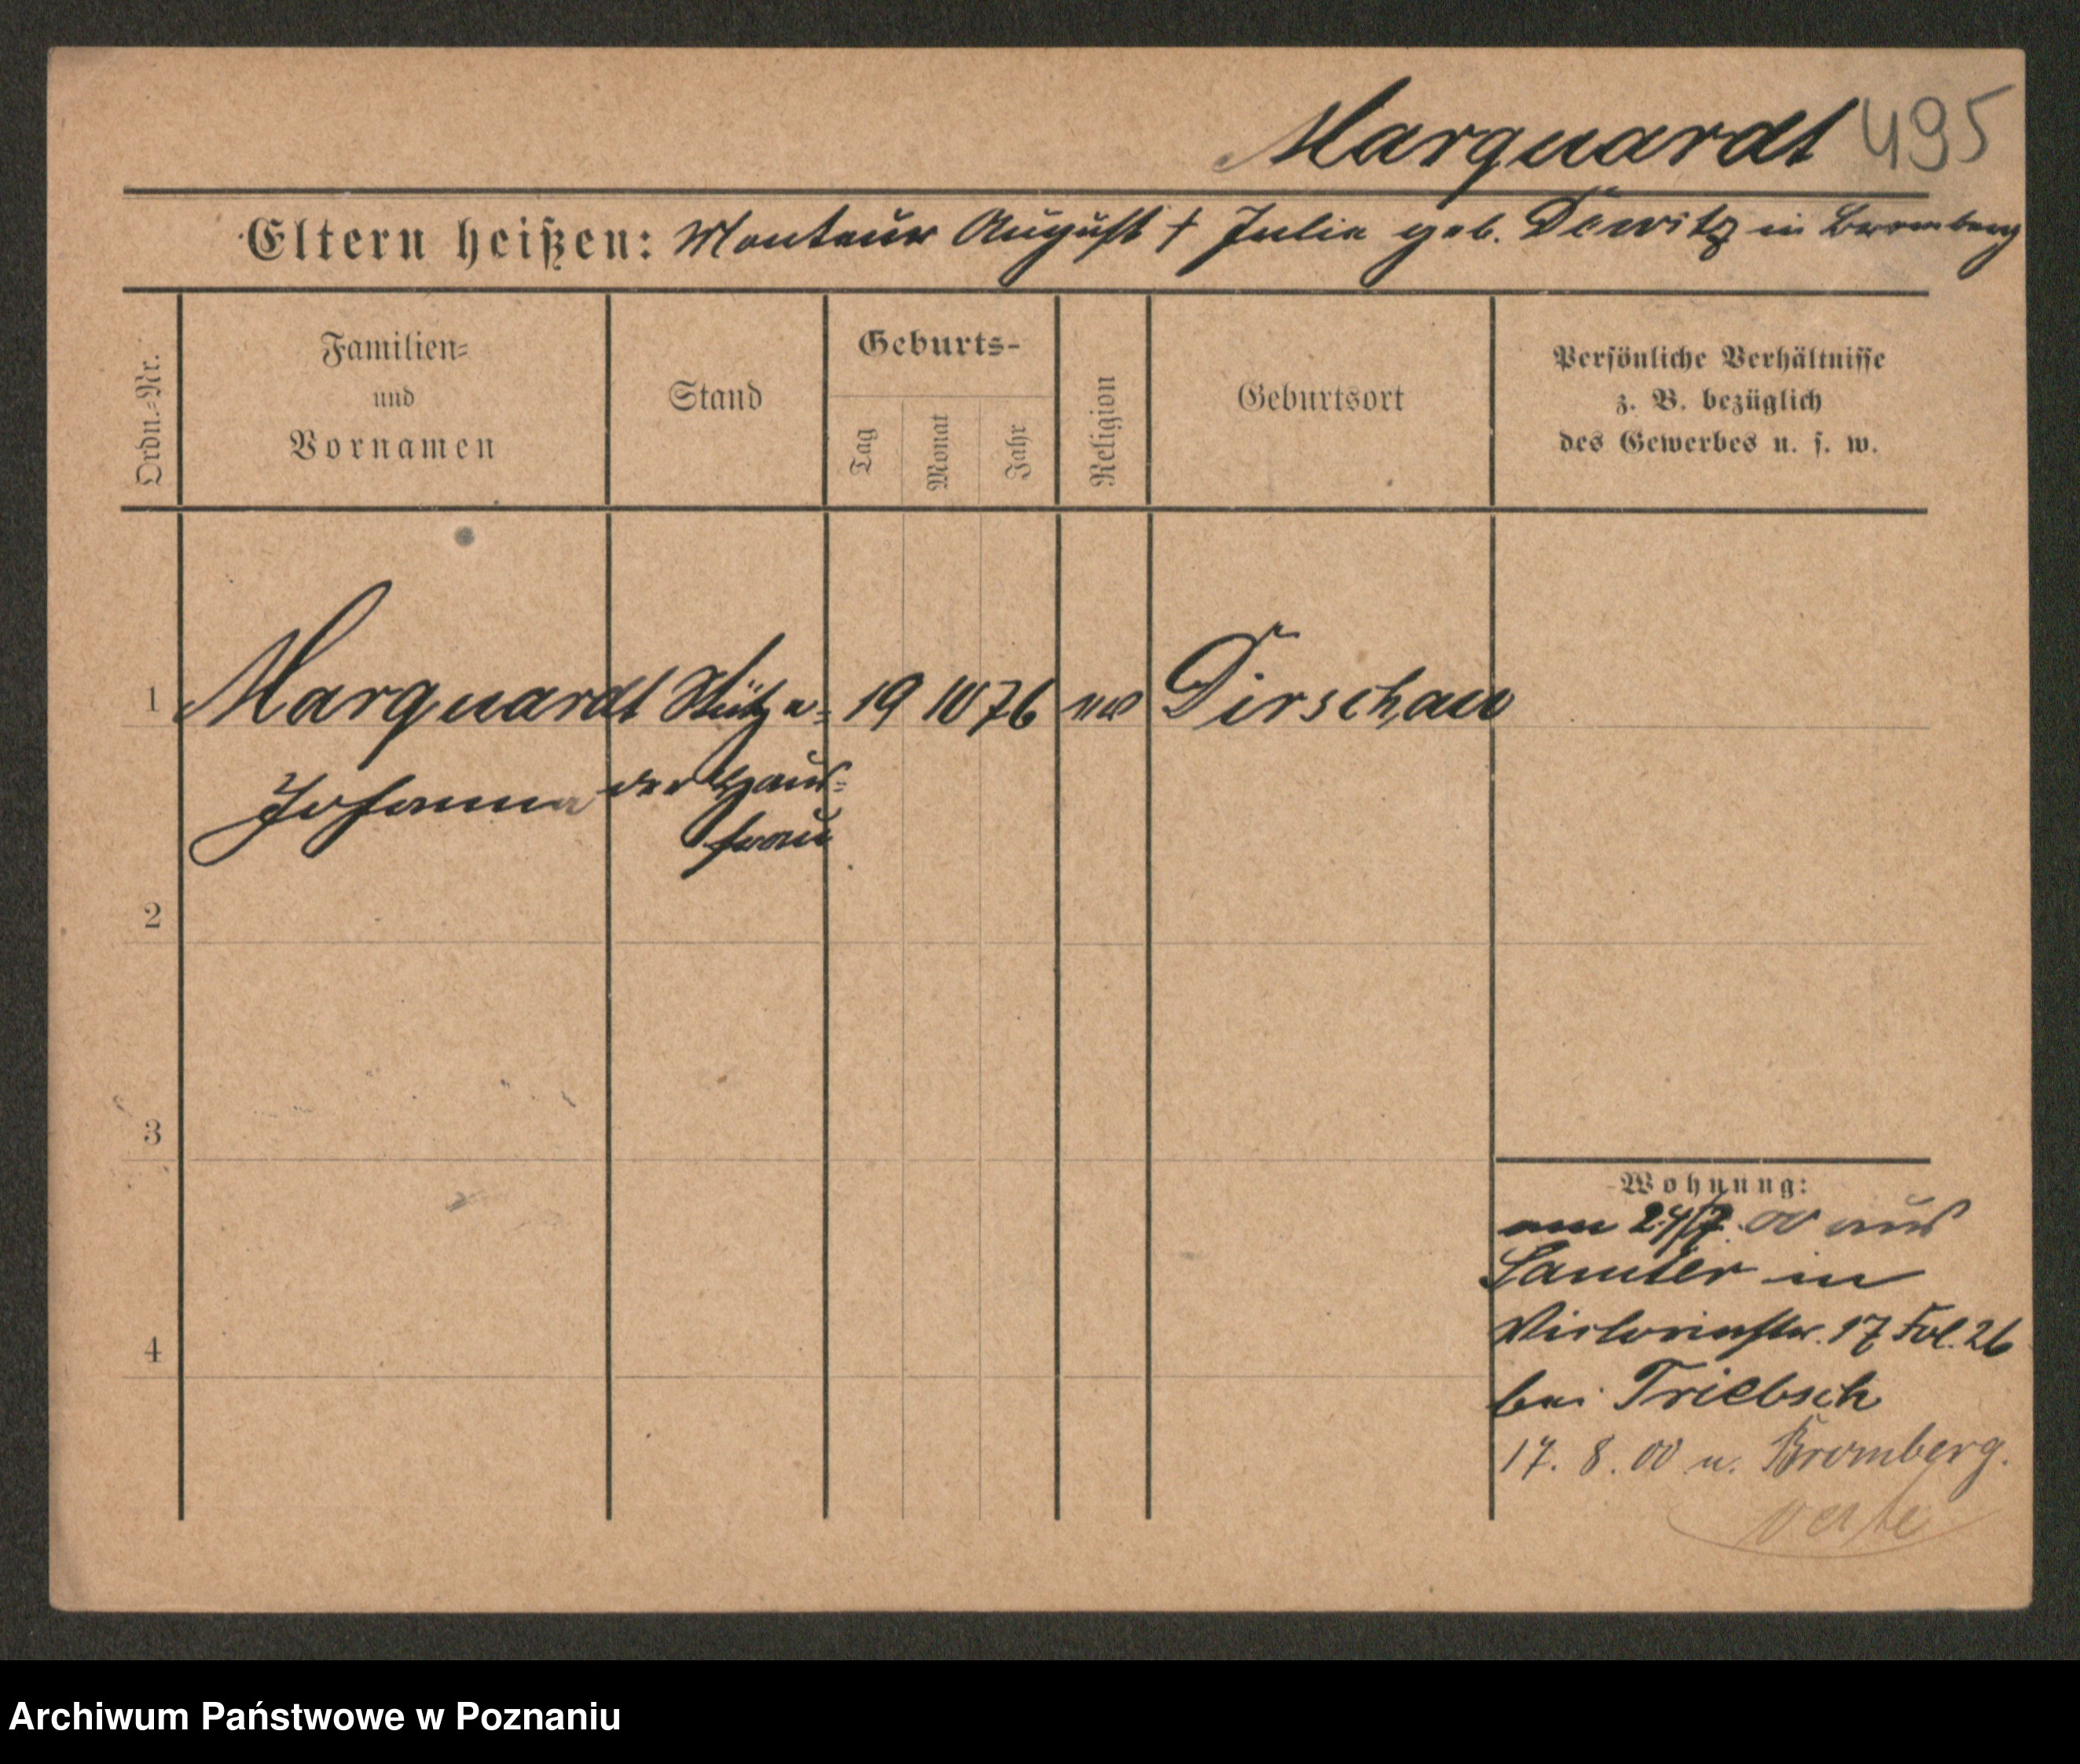 Marquardt 495
Eltern heißen: Monteur August † Julie geb. Dewitz in Bromberg
Ordn.-Nr.
Familien-
und
Vornamen
Stand
Geburts-
Tag
Monat
Jahr
Religion
Geburtsort
Persönliche Verhältnisse
z. B. bezüglich
des Gewerbes u. s. w.
1 Marquardt Stütze- 19 10 76 Dirschau
Johanna der Haus-
frau
2
3
4
Wohnung:
am 24/7. 00 aus
Samter in
Victoriastr. 17 Fol. 26
bei Triebsch
17. 8. 00 n. Bromberg.
Archiwum Państwowe w Poznaniu